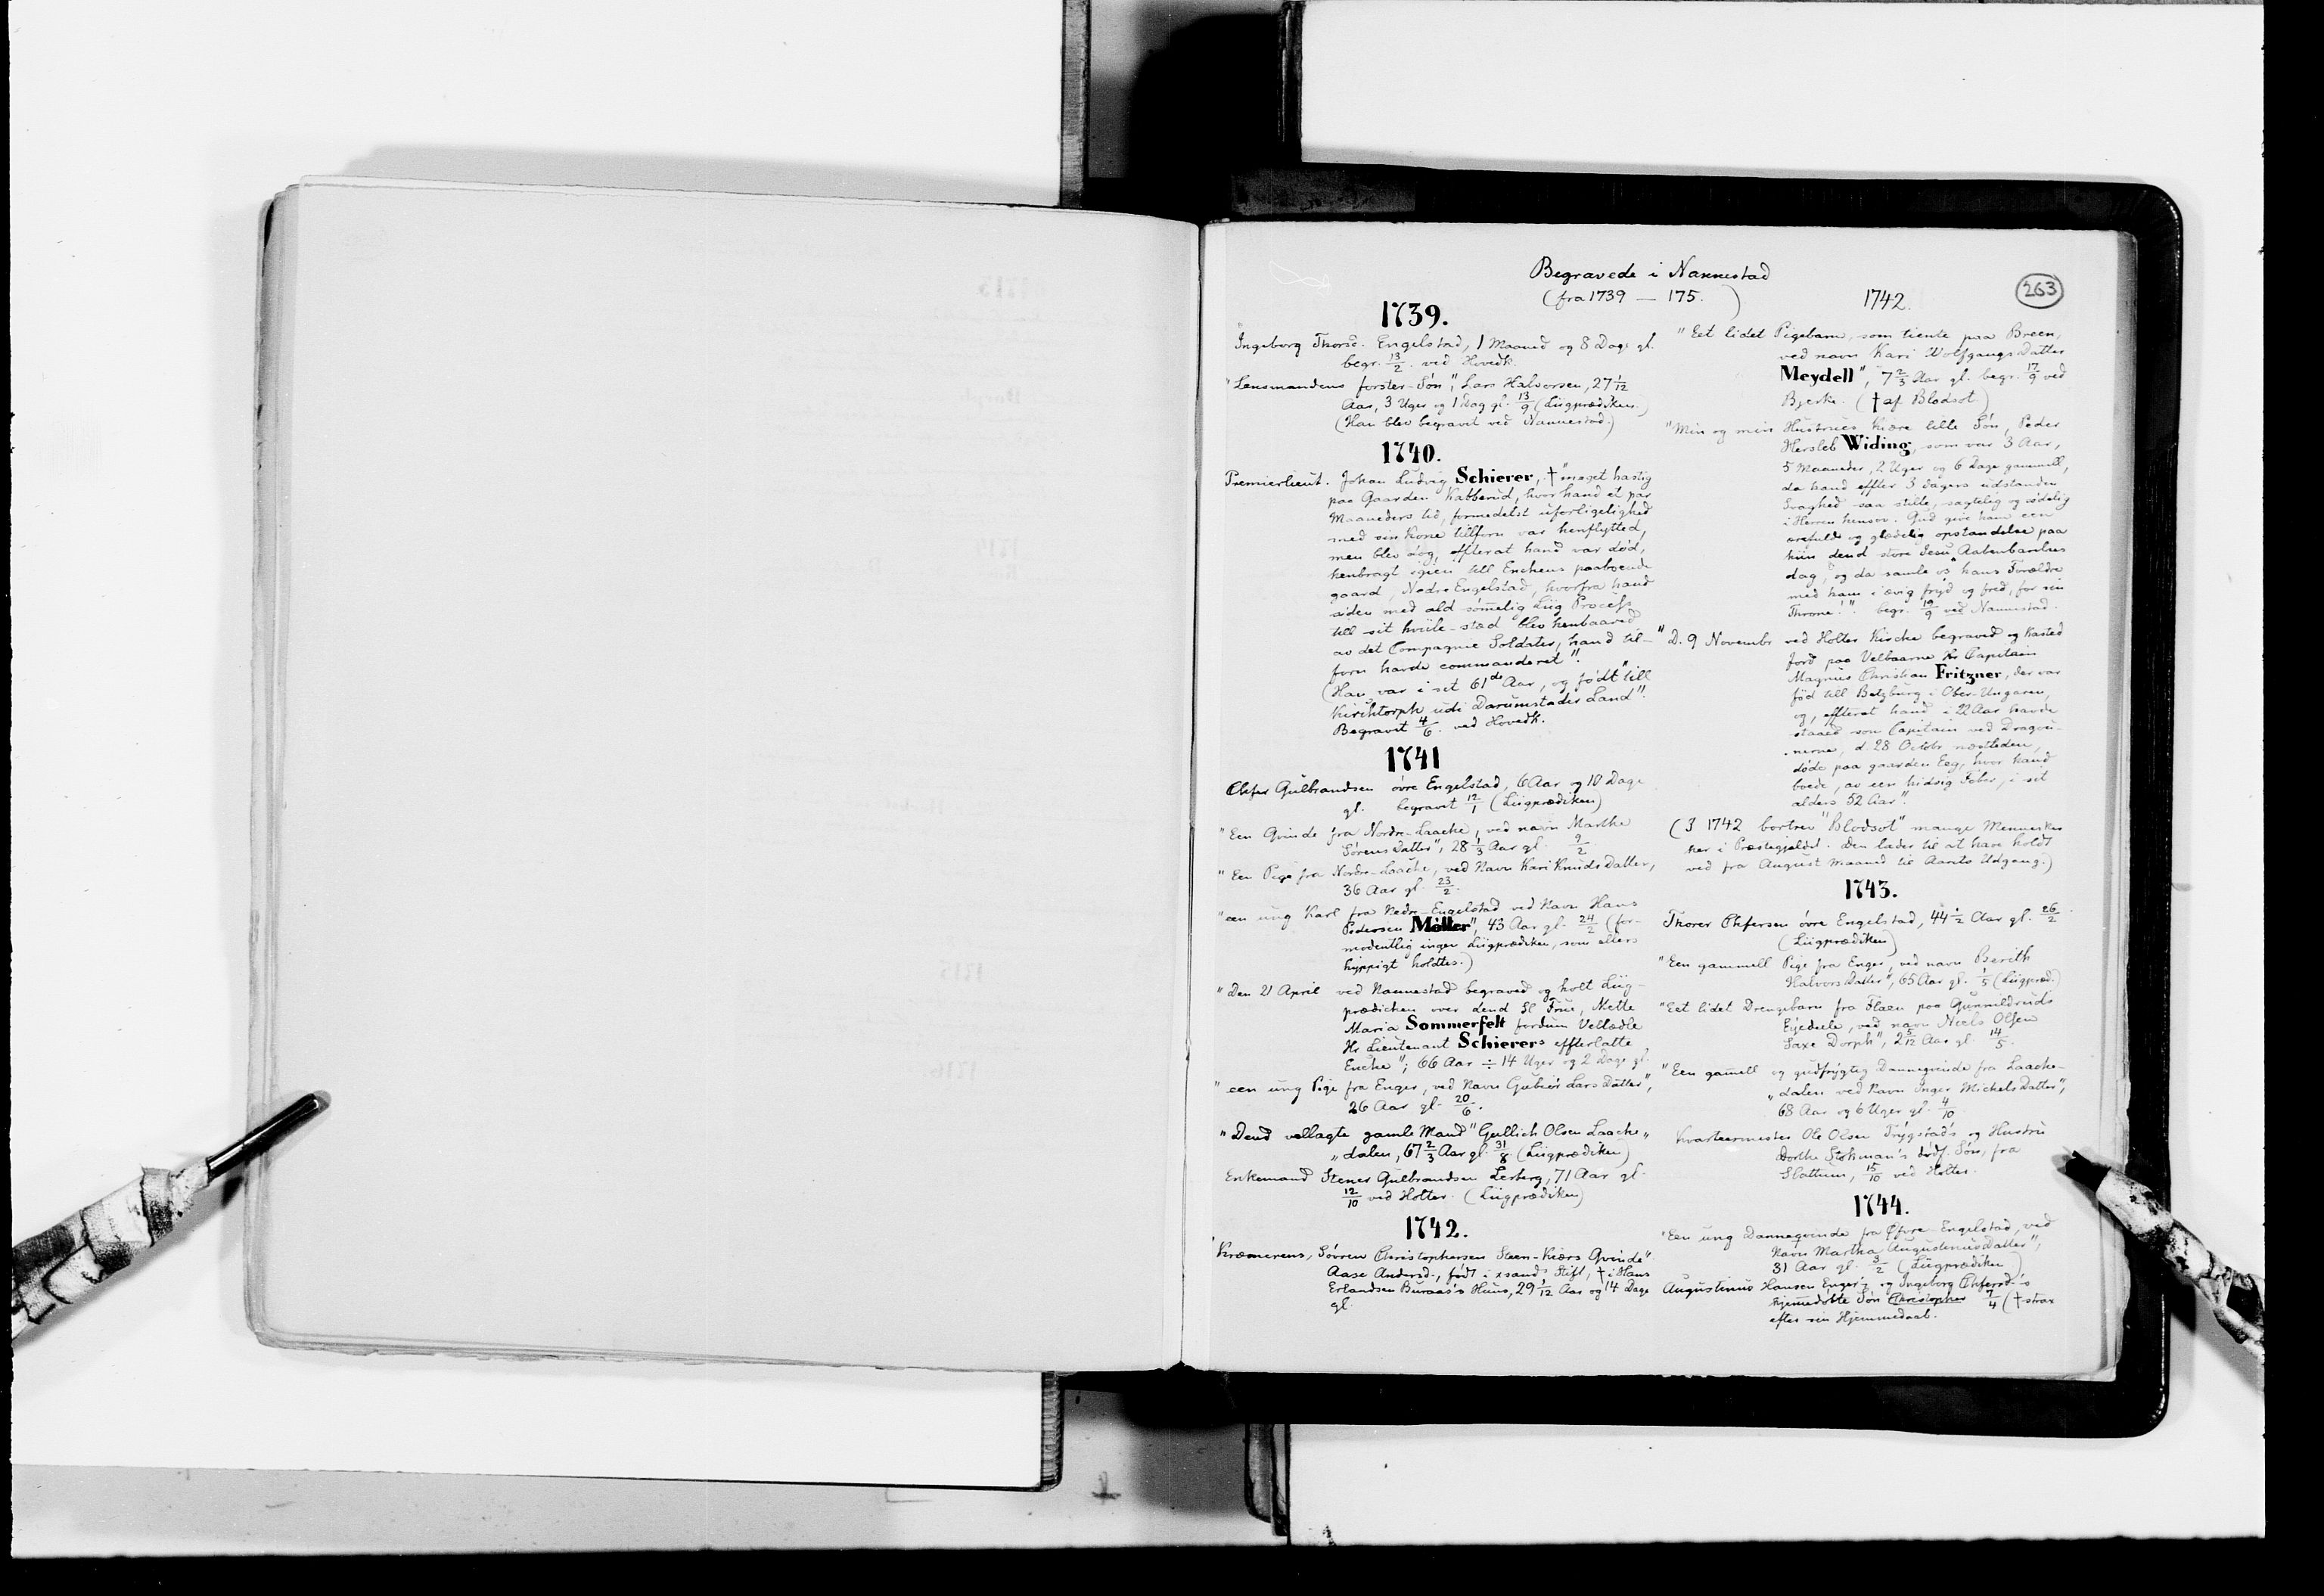 Begravede i Nannestad
(fra 1739 — 175. )
263
1739.
"Ingeborg Thorsd. Engelstad, 1 Maaned og 8 Dage gl.
begr. 13/2. ved Hovedk.
"Lensmandens forster-Søn", Lars Halvorsen, 27 1/12
Aar, 3 Uger og 1 Dag gl. 13/9 (Liigprædiken.)
(Han blev begravet ved Nannestad.)
1740.
Premierlieut. Johan Ludvig Schierer, † "meget hastig
paa Gaarden Kabberud, hvor hand et par
Maaneders tid, formedelst uforligelighed
med sin Kone tilforn var henflytted,
men blev dog, effterat hand var død,
henbragt igien till Enchens paaboende
gaard, Nedre Engelstad, hvorfra hand
siden med ald sømmelig Liig Process
till sit hviile-stæd blev henbaared
av det Compagnie Soldater, hand til-
forn havde commanderet".
(Han var i sit 61de Aar, og født "till
Kirchtorph udi Darumstadis Land".
Begravet 4/6. ved Hovedk.
1741
Chfer Gulbrandsen øvre Engelstad, 6 Aar og 10 Dage
gl. begravet 12/1 (Liigprædiken)
"Een Qvinde fra Nordre-Laache, ved navn Marthe
Sørens Datter", 28 1/3 Aar gl. 9/2
"Een Pige fra Nordre-Laache, ved Navn Kari Knuds Datter,
36 Aar gl. 23/2.
"een ung Karl fra Nedre-Engelstad ved Navn Hans
Pedersen Møller", 43 Aar gl. 24/2 (for-
modentlig ingen Liigprædiken, som ellers
hyppigt holdtes.)
"Den 21 April ved Nannestad begraved og holt Liig-
prædichen over dend Sl Frue, Mette
Maria Sommerfelt fordum Vellædle
Hr Lieutenant Schierers effterlatte
Enche"; 66 Aar ÷ 14 Uger og 2 Dage gl.
"een ung Pige fra Enger, ved Navn Gubiør Lars Datter",
26 Aar gl. 20/6.
"Dend vellagte gamle Mand" Gullich Olsen Laache„
„dalen, 67 2/3 Aar gl. 31/8 (Liigprædiken)
Enkemand Stener Gulbrandsen Lerberg, 71 Aar gl.
12/10 ved Holter. (Liigprædiken)
1742.
"Kræmerens, Søvren Christophersen Steen-Kiærs Qvinde"
Aase Andersd., født i Xsands Stift, † i Hans
Erlandsen Buraas's Huus, 29 1/12 Aar og 14 Dage
gl.
1742.
"Eet lidet Pigebarn, som tiente paa Breen,
ved navn Kari Wolfgangs Datter
Meydell", 7 2/3 Aar gl. begr. 17/9 ved
Bjerke. († af Blodsot.)
"Min og min Hustrues Kiære lille Søn, Peder
Hersleb Widing, som var 3 Aar,
5 Maaneder, 2 Uger og 6 Dage gammell,
da hand effter 3 dagers udstanden
Svaghed saa stille, sagtelig og sødelig
i Herren hensov. Gud give ham een
ærefuld og glædelig opstandelse paa
hiin dend store Jesu Aabenbarelses
dag, og da samle os hans Forældre
med ham i ævig fryd og fred, for sin
Throne!". begr. 19/9 ved Nannestad.
"D. 9 Novembr ved Holter Kirche begraved og Kasted
Jord paa Velbaarne Hr Capitain
Magnus Christian Fritzner, der var
fød till Betzburg i Ober-Ungaren,
og, effterat hand i 22 Aar havde
staaed som Capitain ved Dragou-
nerne, d. 28 Octobr næstleden,
døde paa gaarden Eeg, hvor hand
boede, av een hidsig Feber, i sit
alders 52 Aar".
(I 1742 bortrev "Blodsot" mange Mennesker
her i Præstegjeldet. Den lader til at have holdt
ved fra August Maaned til Aarets Udgang.)
1743.
Thorer Chfersen øvre Engelstad, 44 1/2 Aar gl. 26/2.
(Liigprædiken)
"Een gammell Pige fra Enger, ved navn Berith
Halvors Datter", 65 Aar gl. 1/5 (Liigpræd.)
"Eet lidet Drengebarn fra Flaen paa Gunnildruds
Eijedeele, ved navn Niels Olsen
Saxe Dorph", 2 5/12 Aar gl. 14/5.
"Een gamell og gudfrygtig Danneqvinde fra Laache-
„dalen ved Navn Inger Michels Datter",
68 Aar og 6 Uger gl. 4/10
Kvarteermester Ole Olsen Trygstad's og Hustru
Dorthe Stokman's dødf. Søn, fra
Slattum, 15/10 ved Holter.
1744.
"Een ung Danneqvinde fra Øfvre-Engelstad, ved
Navn Martha Augustinus Datter",
31 Aar gl. 3/2 (Liigprædiken)
Augustinus Hansen Enger's og Ingeborg Chfersd.'s
hjemedøbte Søn Christopher 7/4 († strax
efter sin Hjemmedaab.